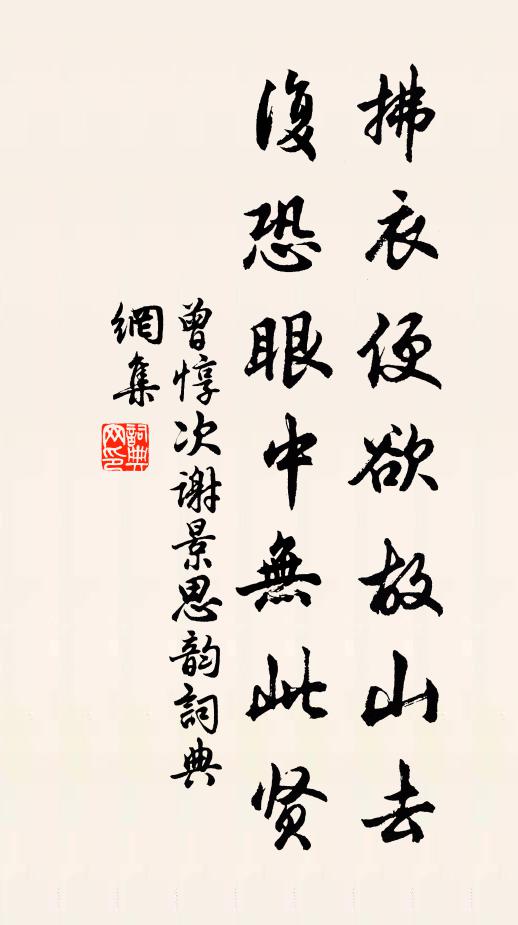 拂衣便欲故山去
復恐眼中無此贤
曾惇次謝景思韵詞典
網集
詞典
网印